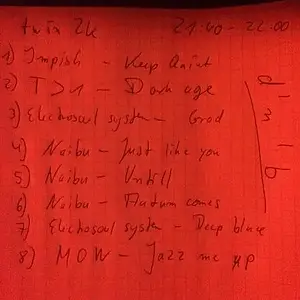 twin 2k 21:40 - 22:00
1) Impish - Keep Quiet
2) T>I - Dark age
3) Electrosoul system - Grod
4) Noibu - Just like you
5) Noibu - Untill
6) Noibu - Autum comes
7) Electrosoul system - Deep blue
8) MOW - Jazz me up
d'n'b